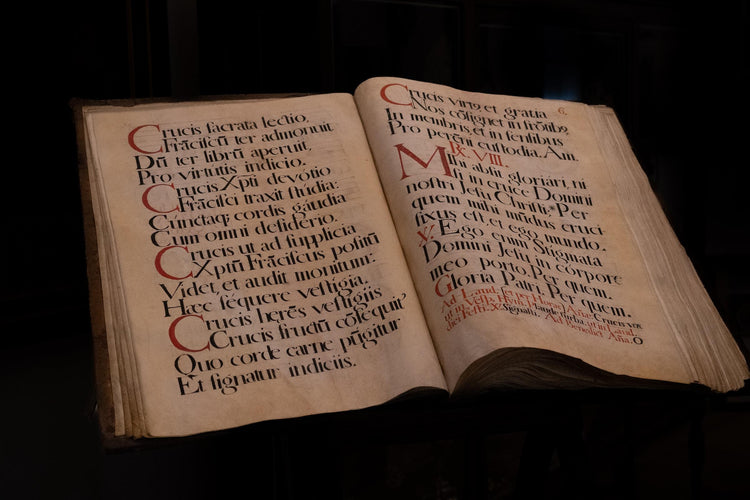 Crucis sacrata lectio,
Frãciscũ ter admonuit
Dũ ter librũ aperuit,
Pro virtutis indicio.
Crucis Xp̃ti devotio
Frãcisci traxit studia:
Cũctaq; cordis gaudia
Cum omni desiderio.
Crucis ut ad supplicia
Xp̃tũ Frãciscus posuit
Videt, et audit monitum:
Hæc sequere vestigia.
Crucis herẽs vestigiis
Crucis fructũ cõsequit'
Quo corde carne pũgitur
Et signatur indiciis.
Crucis virtq; et gratia 6.
Nos cõsignet in frõtibq;
In membris, et in sensibus
Pro perẽni custodia. Am.
℞. VIII.
Mihi absit gloriári, ni
si in cruce Domini
nostri Jesu Christi: * Per
quem mihi mũdus cruci
fixus est, et ego mundo.
℣. Ego enim Stigmata
Domini Jesu in corpore
meo porto. Per quem.
Gloria Patri. Per quem.
Ad Laud: et per Horas Aña.